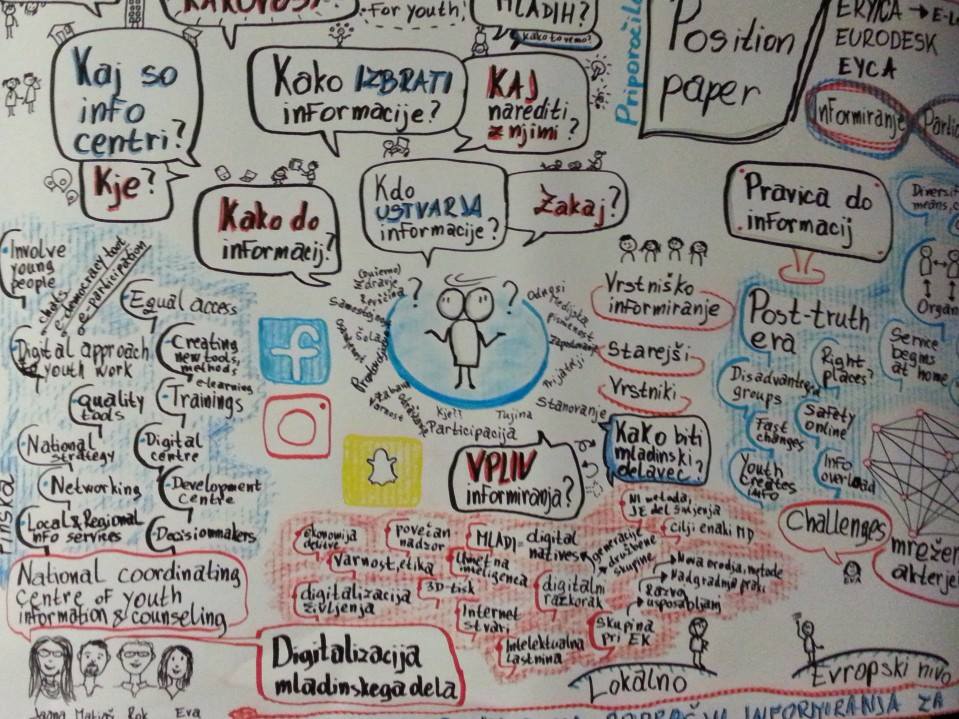 for youth,
MLADIH?
Kaj so
info
centri?
Kje?
Kako IZBRATI
informacije?
KAJ
narediti
z njimi?
Priporočila
Position
paper
ERYICA → E-L
EURODESK
EYCA
Informiranje
Kako do
informacij?
Kdo
USTVARJA
informacije?
Zakaj?
Pravica do
informacij
Involve
young
people
chats
e-democracy tool
e-participation
Equal access
Digital approach
to youth work
Creating
new tools,
methods
e-learning
Trainings
quality
tools
National
strategy
Digital
centre
Networking
Development
centre
Local & Regional
info services
Decisionmakers
National coordinating
centre of youth
information & counseling
Digitalizacija
mladinskega dela
Jagna Matjaž Rok Eva
f
?
?
Zdravje
Šola
Odnosi
Medijska
pismenost
Zaposlovanje
Prijatelji
Stanovanje
Kje?!
Tujina
Participacija
Vrstniško
informiranje
Starejši
Vrstniki
VPLIV
informiranja?
Kako biti
mladinski
delavec?
Post-truth
era
Right
places?
Disadvantaged
groups
Safety
online
Fast
changes
Youth
creates
info
Info
overload
Challenges
Service
begins
at home
mrežen
akterje
ekonomija
delitve
povečan
nadzor
MLADI - digital
natives
generacije
& družbene
skupine
Ni metoda,
JE del življenja
cilji enaki MD
Varnost, etika
Umetna
inteligenca
digitalizacija
življenja
3D-tisk
Internet
stvari
digitalni
razkorak
Nova orodja, metode
usposabljanj
skupina
pri EK
Intelektualna
lastnina
Lokalno
Evropski nivo
INFORMIRANJA ZA